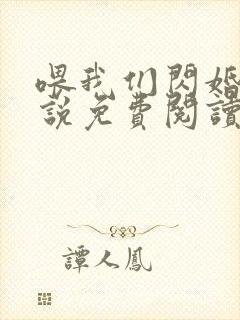 喂我们閃婚
說免費閱讀
譚人鳳